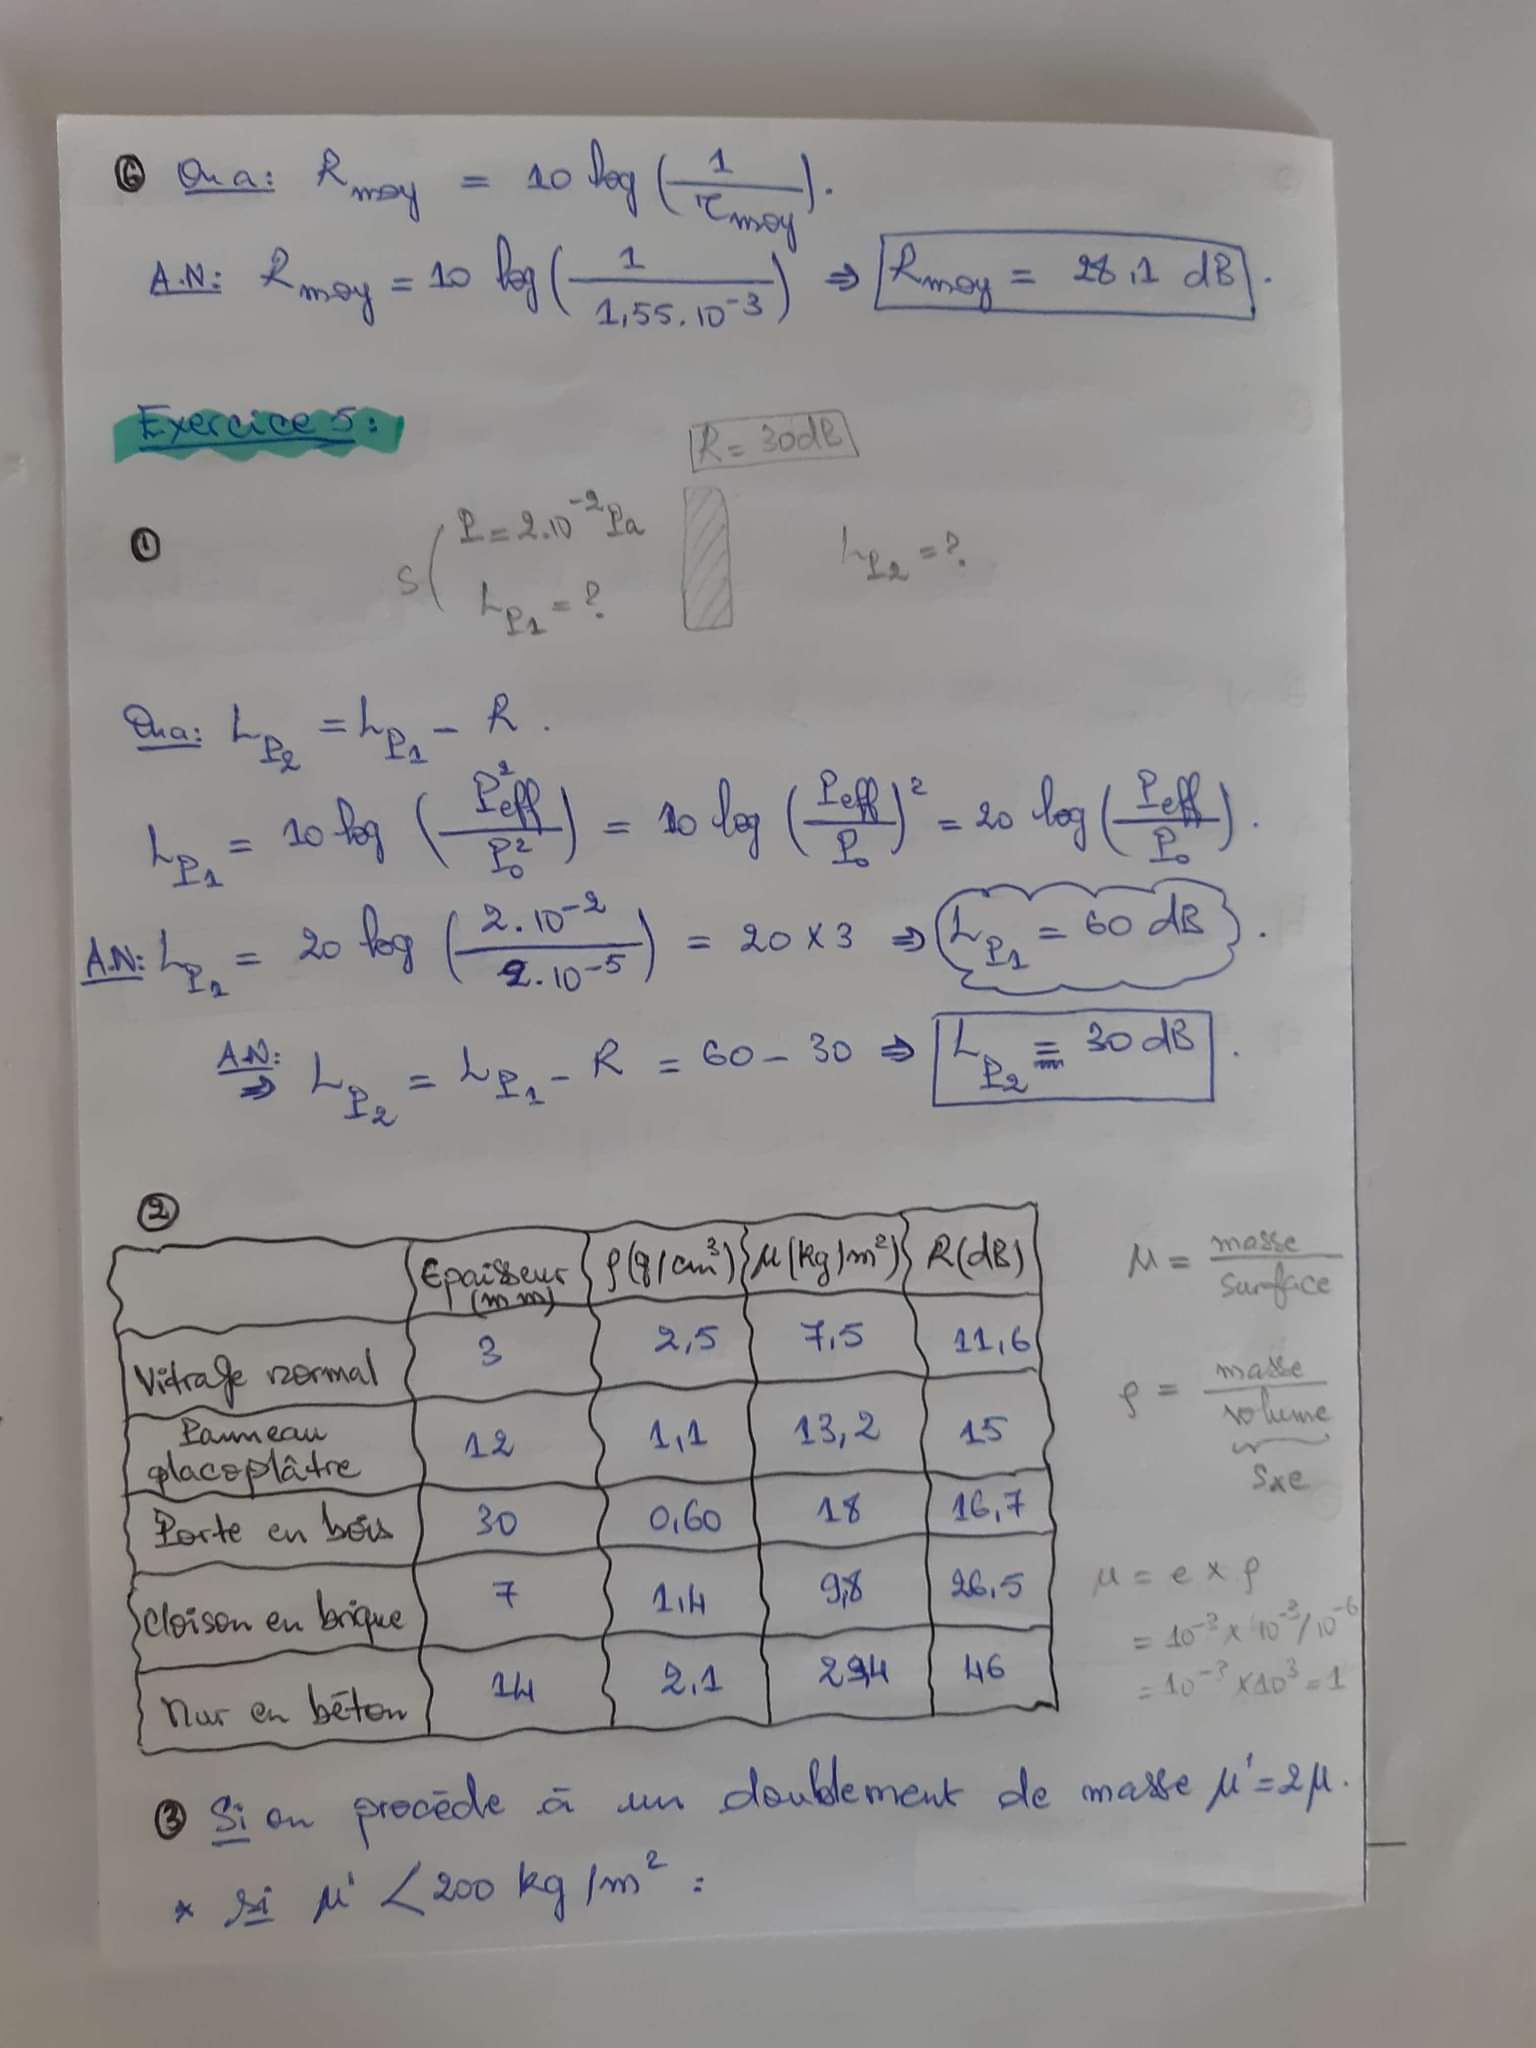 ⑥ On a : R moy = 10 log ( 1 / τ moy ).
A.N: R moy = 10 log ( 1 / 1,55.10⁻³ ) ⇒ R moy = 28,1 dB.
Exercice 5 :
R = 30dB
① S ( P = 2.10⁻² Pa
L_P1 = ?
L_P2 = ?
On a : L_P2 = L_P1 - R.
L_P1 = 10 log ( P²eff / P₀² ) = 10 log ( Peff / P₀ )² = 20 log ( Peff / P₀ ).
A.N: L_P1 = 20 log ( 2.10⁻² / 2.10⁻⁵ ) = 20 x 3 ⇒ L_P1 = 60 dB.
A.N: ⇒ L_P2 = L_P1 - R = 60 - 30 ⇒ L_P2 = 30 dB.
②
Epaisseur (mm) ρ(g/cm³) μ(kg/m²) R(dB)
Vitrage normal 3 2,5 7,5 11,6
Panneau placoplâtre 12 1,1 13,2 15
Porte en bois 30 0,60 18 16,7
Cloison en brique 7 1,4 9,8 26,5
Mur en béton 14 2,1 294 46
μ = masse / surface
ρ = masse / volume
S x e
μ = e x ρ
= 10⁻³ x 10⁻³/10⁻⁶
= 10⁻³ x 10³ = 1
③ Si on procède à un doublement de masse μ' = 2μ.
* si μ' < 200 kg/m² :